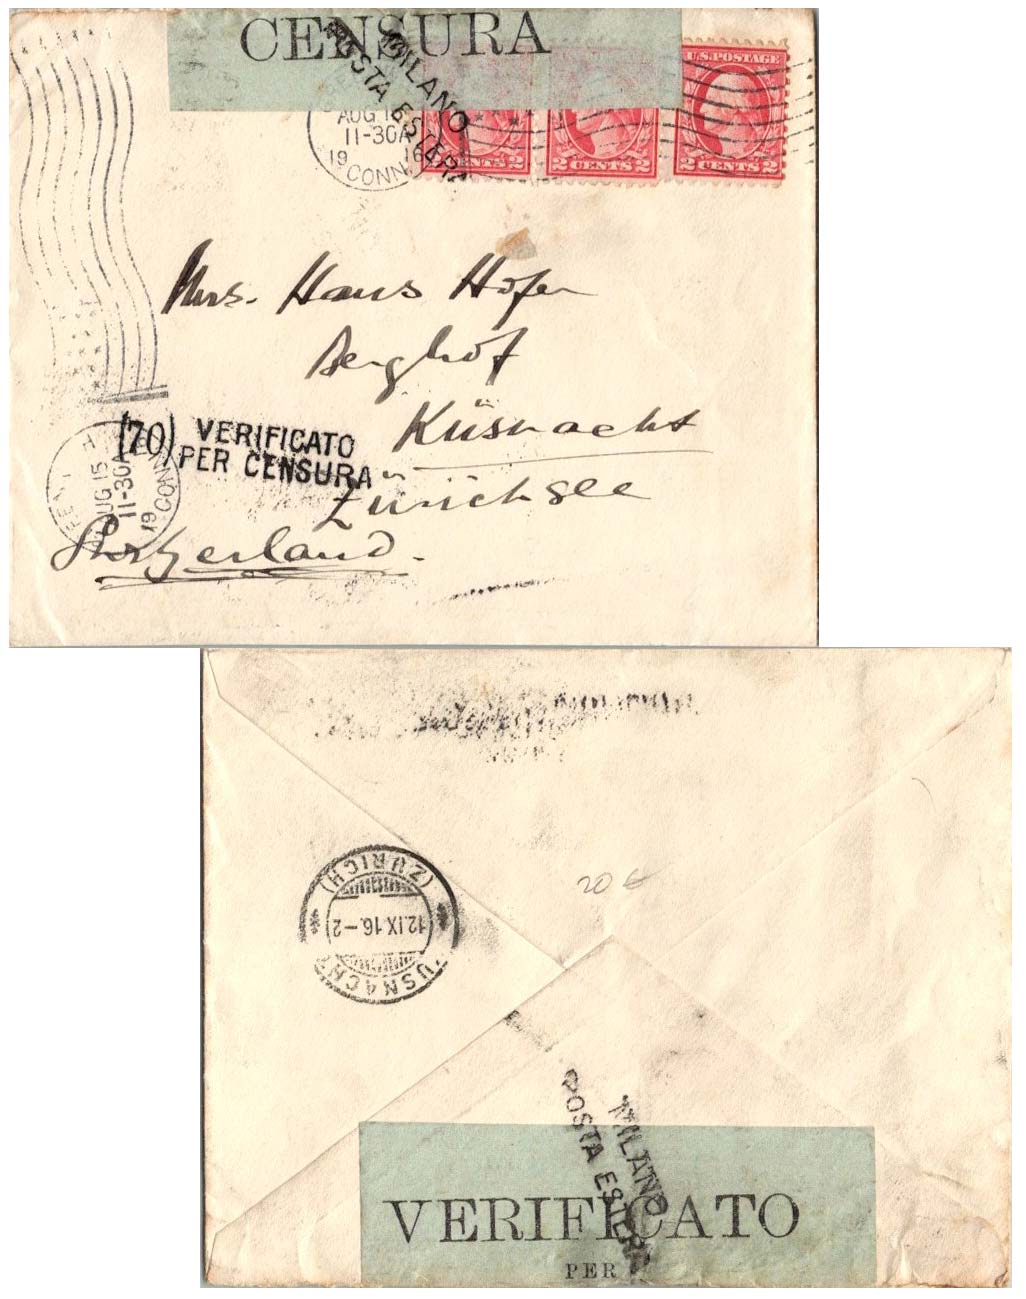 CENSURA
MILANO
POSTA ESTERA
U.S. POSTAGE
AUG 1
11-30A
19 16
CONN.
CENTS 2
2 CENTS 2
2 CENTS 2
Mrs. Hans Hofer
Berghof
Küsnacht
Zürichsee
Switzerland.
(70) VERIFICATO
PER CENSURA
AUG 15
11-30A
19
CONN
(ZÜRICH)
12.IX.16.-2
USNACH
20 €
MILANO
POSTA ESTERA
VERIFICATO
PER